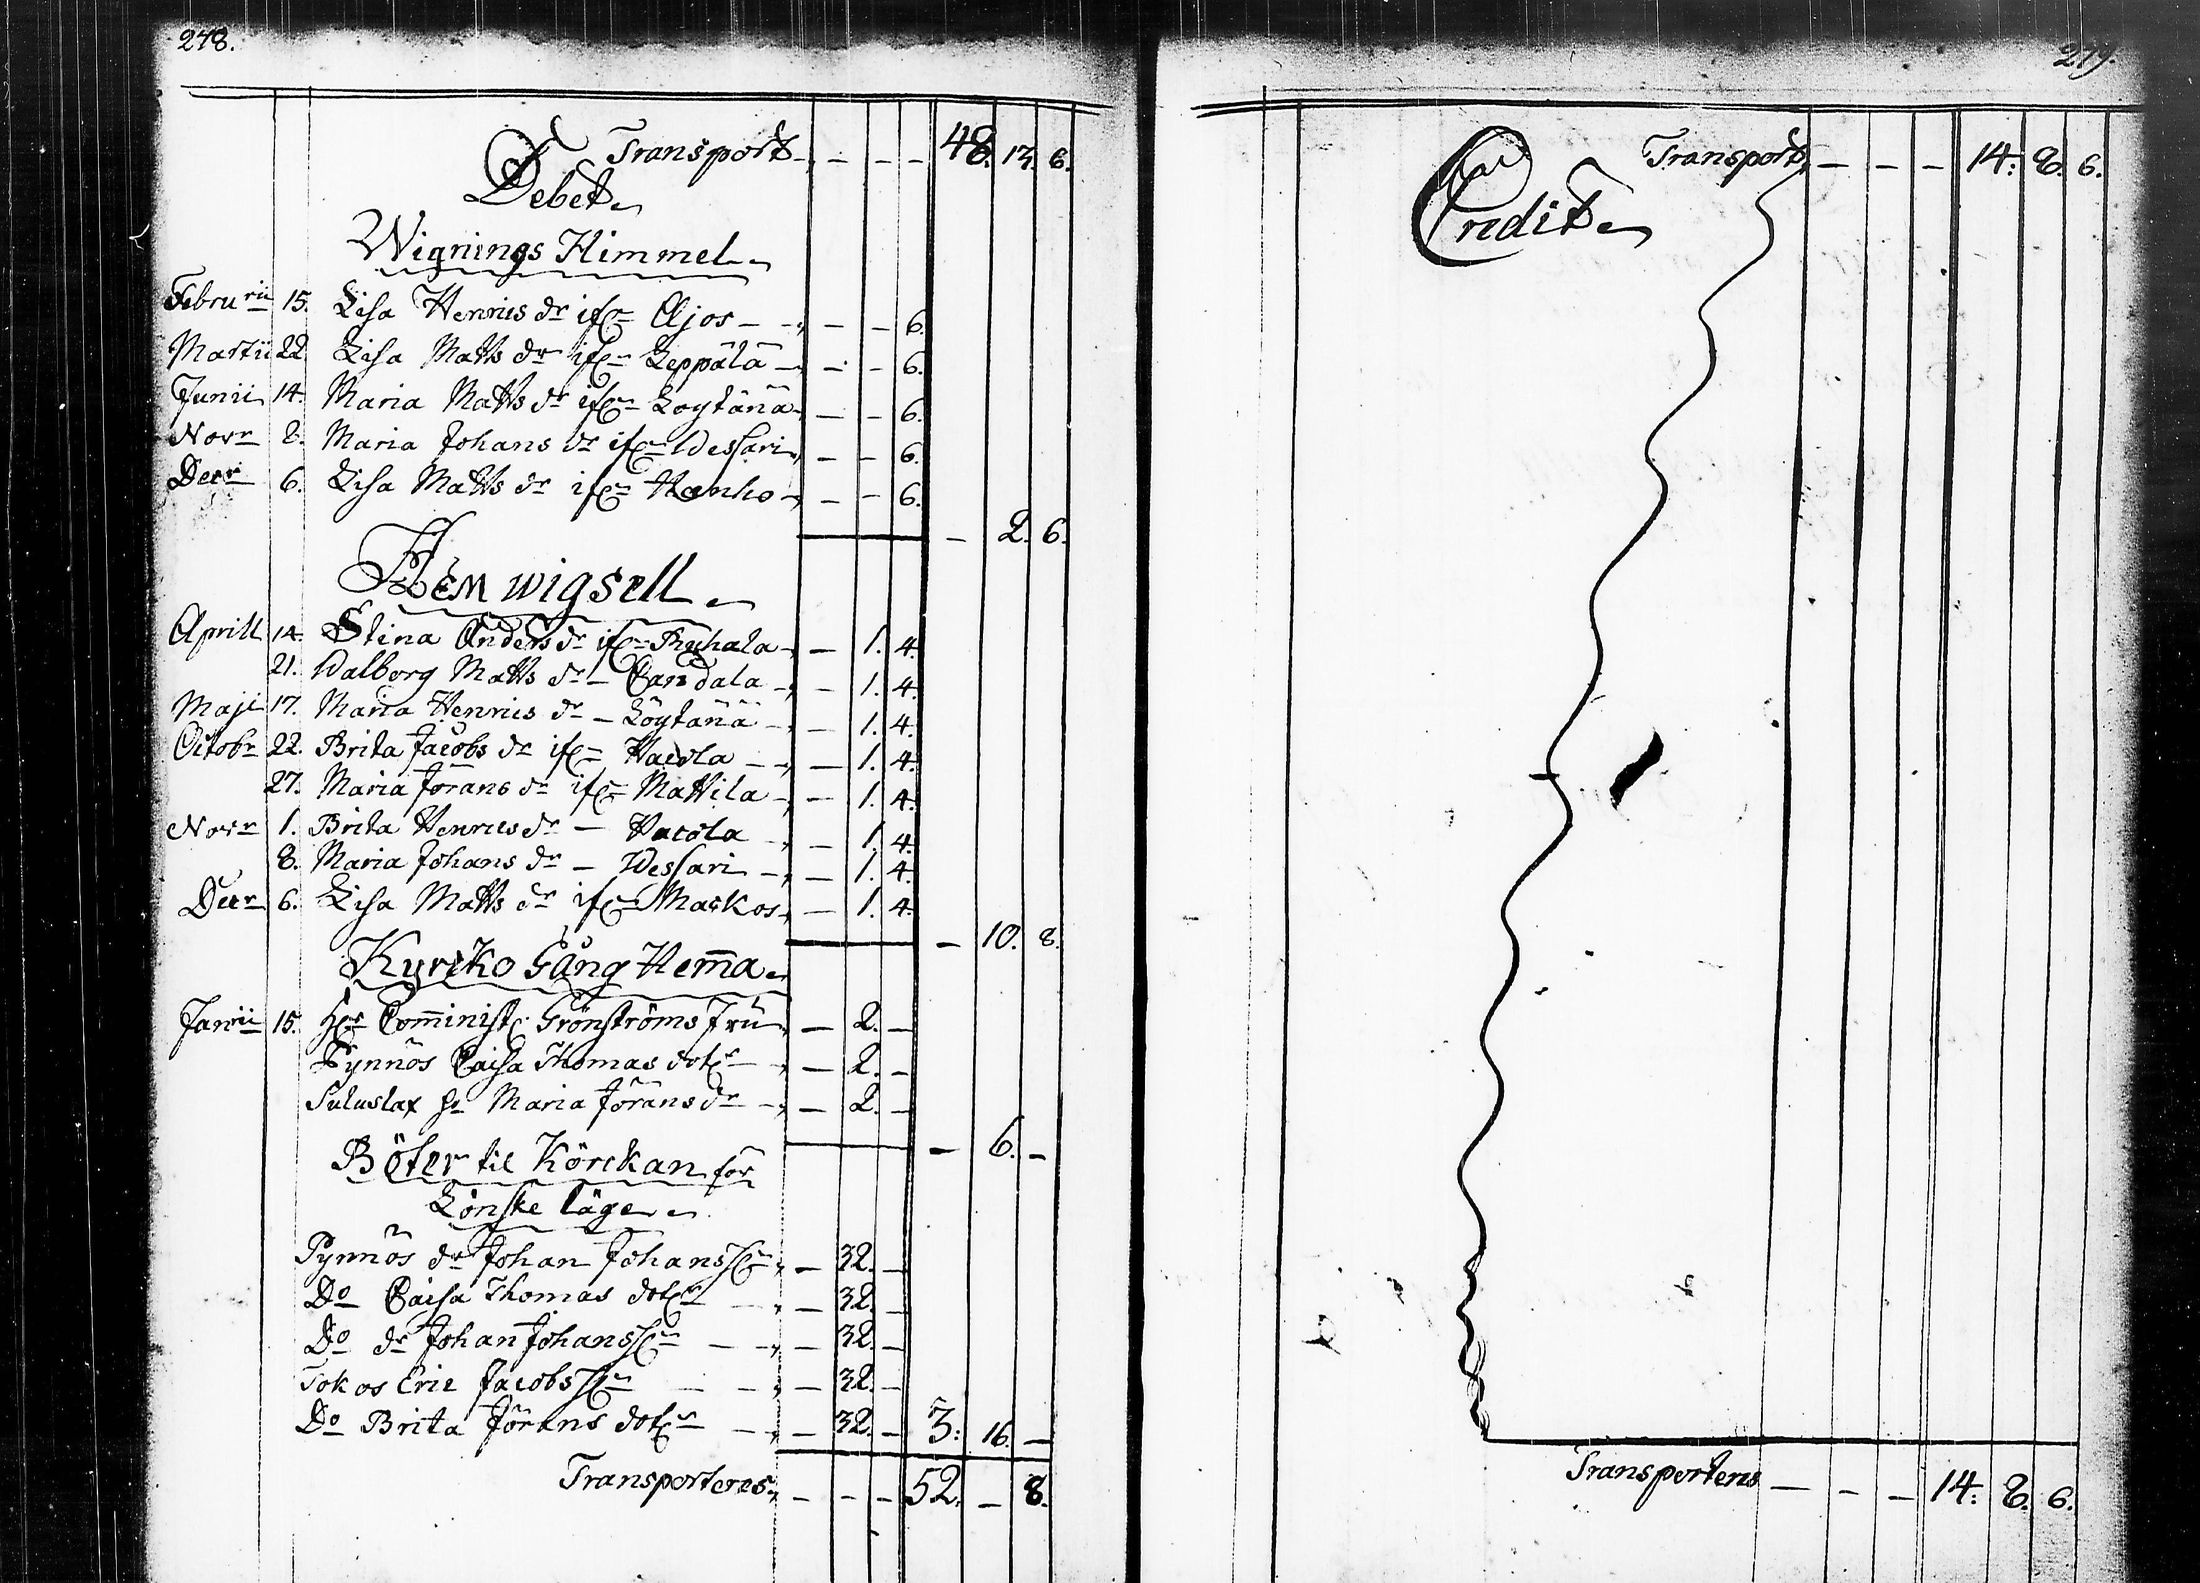 278.
Transport - - - 48. 13. 6.
Debet
Wignings Himmel
Februrii 15. Lisa Henrics dr ifr Ajos - - - - 6.
Martii 22 Lisa Matts dr ifrn Leppälä - - - 6.
Junii 14. Maria Matts dr ifrn Loytänä - - 6.
Novr 8. Maria Johans dr ifrn Wessari - - 6.
Decr 6. Lisa Matts dr ifrn Hanho - - - 6.
- 2. 6.
Hem wigsell
Aprill 14. Stina Anders dr ifrn Ruhala - - 1. 4.
21. Walborg Matts dr - Candala - - 1. 4.
Maji 17. Maria Henrics dr - Löytänä - 1. 4.
Octobr 22. Brita Jacobs dr ifrn Hacola - - - 1. 4.
27. Maria Jörans dr ifrn Mattila - - 1. 4.
Novr 1. Brita Henrics dr - Hacola - - 1. 4.
8. Maria Johans dr - Wessari - - 1. 4.
Decr 6. Lisa Matts dr ifrn Markos - 1. 4.
- 10. 8.
Kyrcko Gång Hema
Janrii 15. Hr Cominist. Grönströms Fru - 2. -
Pynnös Caisa Thomas dotr - - 2. -
Suluslax hr Maria Jörans dr - - 2. -
- 6. -
Böter til Körckan för
Lönske läge
Pynnös dr Johan Johanssn - 32. -
Do Caisa Thomas dotr - - - 32. -
Do dr Johan Johanssn - - - 32. -
Tokos Eric Jacobssn - - - - 32. -
Do Brita Jörans dotr - - - 32. - 3. 16. -
Transporteres - - - 52. - 8.
279.
Transport - - - 14. 8. 6.
Credit
Transporteres - - - 14. 8. 6.